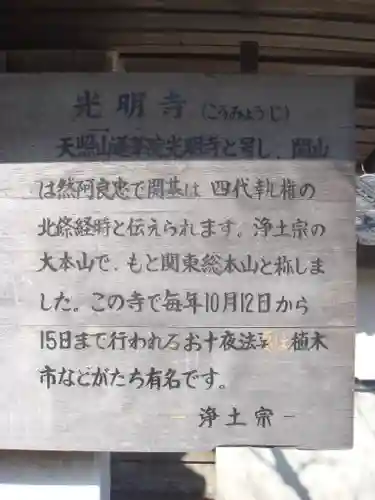 光明寺(こうみょうじ)
天照山蓮華院光明寺と号し、開山
は然阿良忠で開基は四代執権の
北條経時と伝えられます。浄土宗の
大本山で、もと関東総本山と称しま
した。この寺で毎年10月12日から
15日まで行われるお十夜法要は植木
市などがたち有名です。
浄土宗ー